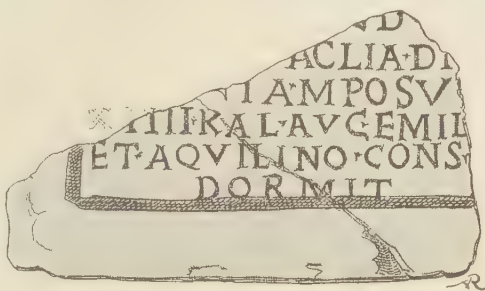 VD
ACLIA·DI
IAM POSV
IIII·KAL·AVG EMIL
ET·AQVILINO·CONS·
DORMIT